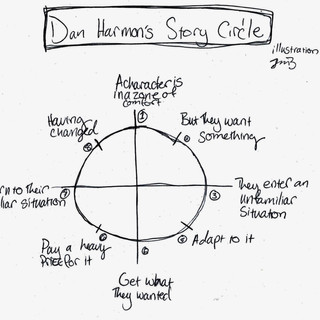 Dan Harmon's Story Circle
illustration
A character is
in a zone of
comfort
1
But they want
something
2
They enter an
unfamiliar
Situation
3
Adapt to it
4
Get what
They wanted
5
Pay a heavy
Price for it
6
rn to Their
liar situation
7
Having
changed
8